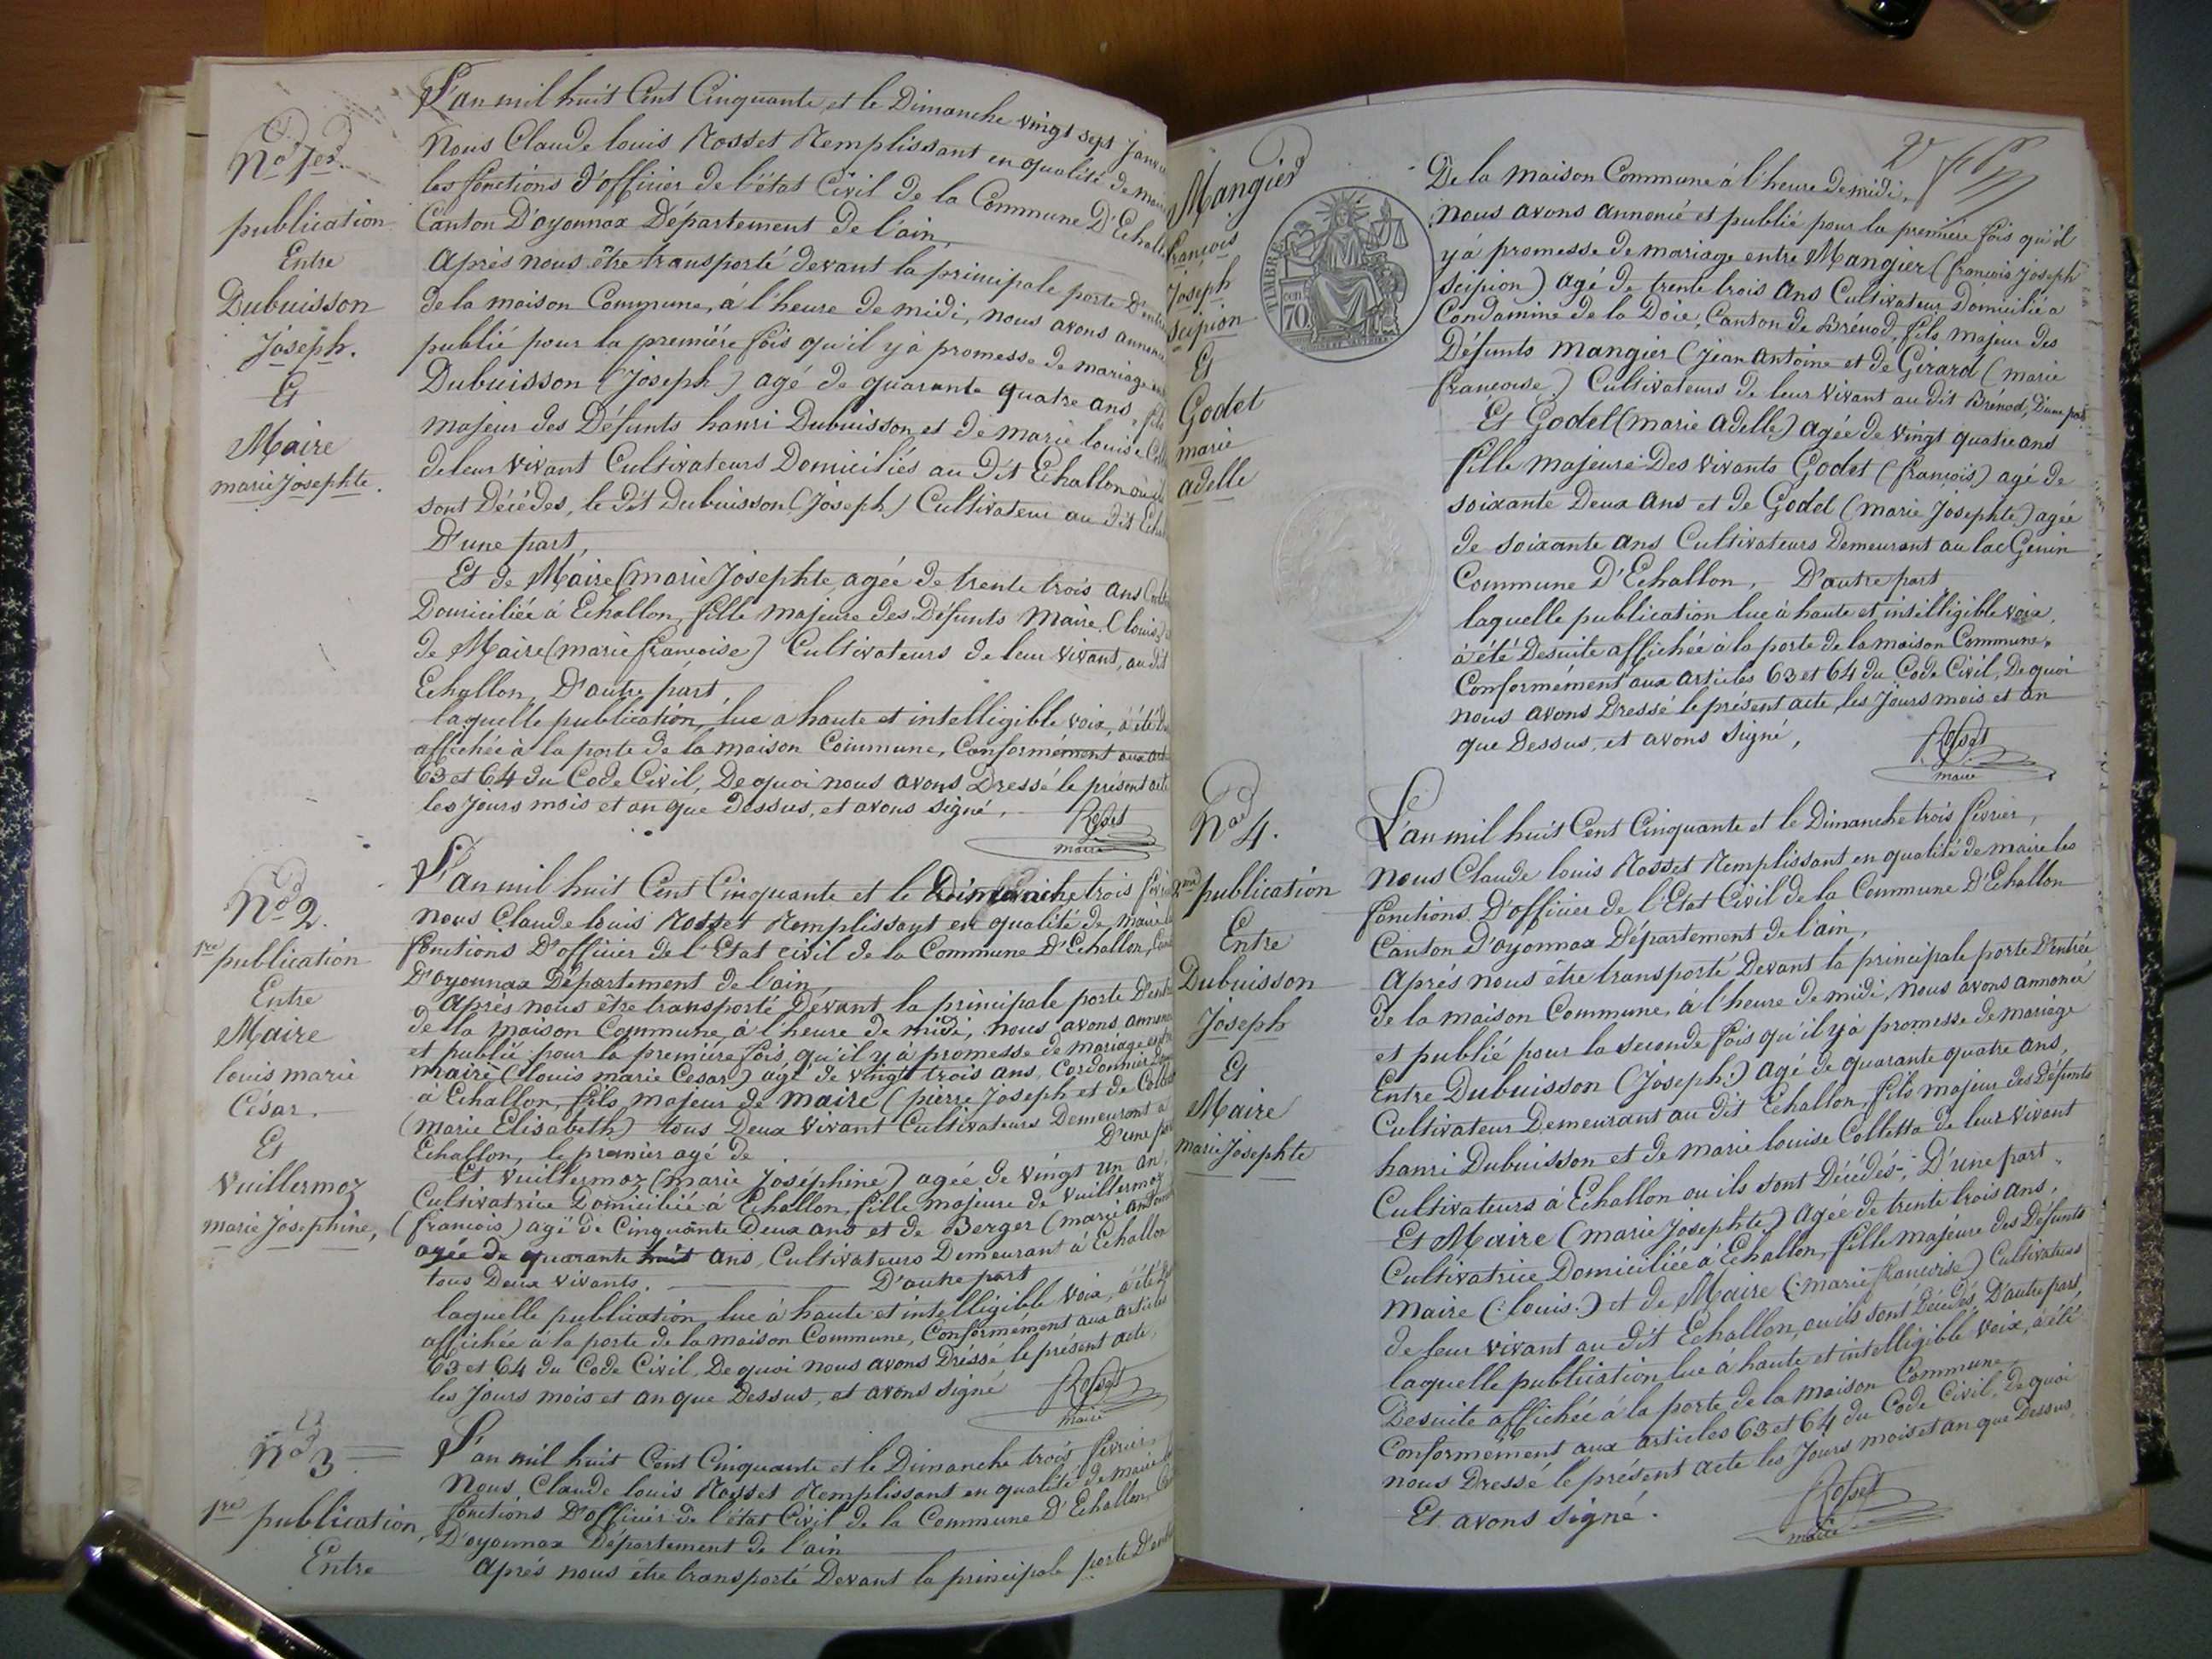 L'an mil huit Cent Cinquante, et le Dimanche vingt sept
Nous Claude louis Rosset Remplissant en qualité de
les fonctions d'officier de l'état Civil de la Commune D'
Canton D'oyonnax Département de l'ain,
Après nous être transporté devant la principale porte
de la maison Commune, à l'heure de midi, nous avons
publié pour la première fois qu'il y à promesse de mariage
Dubuisson (Joseph) agé de quarante quatre ans, fils
majeur des Défunts hanri Dubuisson et de marie louise
de leur vivant Cultivateurs Domiciliés au dit Echallon où ils
sont Décédés, le dit Dubuisson (Joseph) Cultivateur au dit
D'une part,
Et de Maire (marie Josephte agée de trente trois ans
Domiciliée à Echallon, fille majeure des Défunts Maire (louis)
de Maire (marie françoise) Cultivateurs de leur vivant, au dit
Echallon, D'autre part.
laquelle publication, lue a haute et intelligible voix, à été
affichée à la porte de la maison Commune, Conformément aux
63 et 64 du Code Civil, De quoi nous avons Dressé le présent acte
les Jours mois et an que dessus, et avons signé.
Rosset
maire
No 1er
publication
Entre
Dubuisson
Joseph.
Et
Maire
marie Josephte.
L'an mil huit Cent Cinquante et le Dimanche trois
nous Claude louis Rosset Remplissant en qualité de maire
fonctions D'officier de l'Etat civil de la Commune D'Echallon,
D'oyonnax Département de l'ain,
Après nous être transporté Devant la principale porte
de la maison Commune, à l'heure de midi, nous avons
et publié pour la première fois, qu'il y à promesse de mariage
maire (louis marie Cesar) agé de vingt trois ans, Cordonnier
à Echallon, fils majeur de maire (pierre Joseph et de
(marie Elisabeth) tous Deux vivant Cultivateurs Demeurant à
Echallon, le premier agé de D'une
Et Vuillermoz (marie Joséphine) agée de vingt un an,
Cultivatrice Domiciliée à Echallon, fille majeure de Vuillermoz
(françois) agé de Cinquante Deux ans et de Berger (marie
agée de quarante huit ans, Cultivateurs Demeurant à Echallon
tous Deux vivants. D'autre part
laquelle publication lue à haute et intelligible voix, à été
affichée à la porte de la maison Commune, Conformément aux articles
63 et 64 du Code Civil. De quoi nous avons Dréssé le présent acte,
les Jours mois et an que Dessus, et avons signé
Rosset
maire
No 2.
1re publication
Entre
Maire
louis marie
César.
Et
Vuillermoz
marie Josephine,
L'an mil huit Cent Cinquante et le Dimanche trois février,
Nous, Claude louis Rosset Remplissant en qualité de maire
fonctions D'officier de l'état Civil de la Commune D'Echallon,
D'oyonnax Département de l'ain
Après nous être transporté Devant la principale porte
No 3
1re publication,
Entre
Mangier
françois
Joseph
scipion
Et
Godet
marie
adelle
TIMBRE
cen
70
2
De la maison Commune à l'heure de midi,
nous avons annoncé et publié pour la première fois qu'il
y à promesse de mariage entre Mangier (françois Joseph
scipion) agé de trente trois ans Cultivateur Domicilié a
Condamine de la Doie, Canton de Brénod, fils majeur des
Défunts Mangier (Jean antoine et de Girard (marie
françoise) Cultivateurs de leur vivant au dit Brénod, D'une part
Et Godet (marie adelle) agée de vingt quatre ans
fille majeure Des vivants Godet (françois) agé de
soixante Deux ans et de Godet (marie Josephte) agée
de soixante ans Cultivateurs Demeurant au lac Genin
Commune D'Echallon, D'autre part
laquelle publication lue à haute et intelligible voix,
à été Desuite affichée à la porte de la maison Commune,
Conformément aux articles 63 et 64 du Code Civil, De quoi
nous avons Dressé le présent acte, les Jours mois et an
que Dessus, et avons signé,
Rosset
maire
No 4.
2me publication
Entre
Dubuisson
Joseph
Et
Maire
marie Josephte
L'an mil huit Cent Cinquante et le Dimanche trois février,
Nous Claude louis Rosset Remplissant en qualité de maire les
fonctions D'officier de l'Etat Civil de la Commune D'Echallon
Canton D'oyonnax Département de l'ain,
Après nous être transporté Devant la principale porte D'entrée
de la maison Commune, à l'heure de midi, nous avons annoncé
et publié pour la seconde fois qu'il y à promesse de mariage
Entre Dubuisson (Joseph) agé de quarante quatre ans,
Cultivateur Demeurant au dit Echallon, fils majeur des Défunts
hanri Dubuisson et de marie louise Colletta de leur vivant
Cultivateurs à Echallon ou ils sont Décédés, D'une part.
Et Maire (marie Josephte) agée de trente trois ans,
Cultivatrice Domiciliée à Echallon, fille majeure des Défunts
Maire (louis) et de Maire (marie françoise) Cultivateurs
de leur vivant au dit Echallon, ou ils sont Décédés, D'autre part,
laquelle publication lue à haute et intelligible voix, à été
Desuite affichée à la porte de la maison Commune,
Conformément aux articles 63 et 64 du Code Civil, De quoi
nous Dressé le présent acte les Jours mois et an que Dessus,
Et avons signé.
Rosset
maire